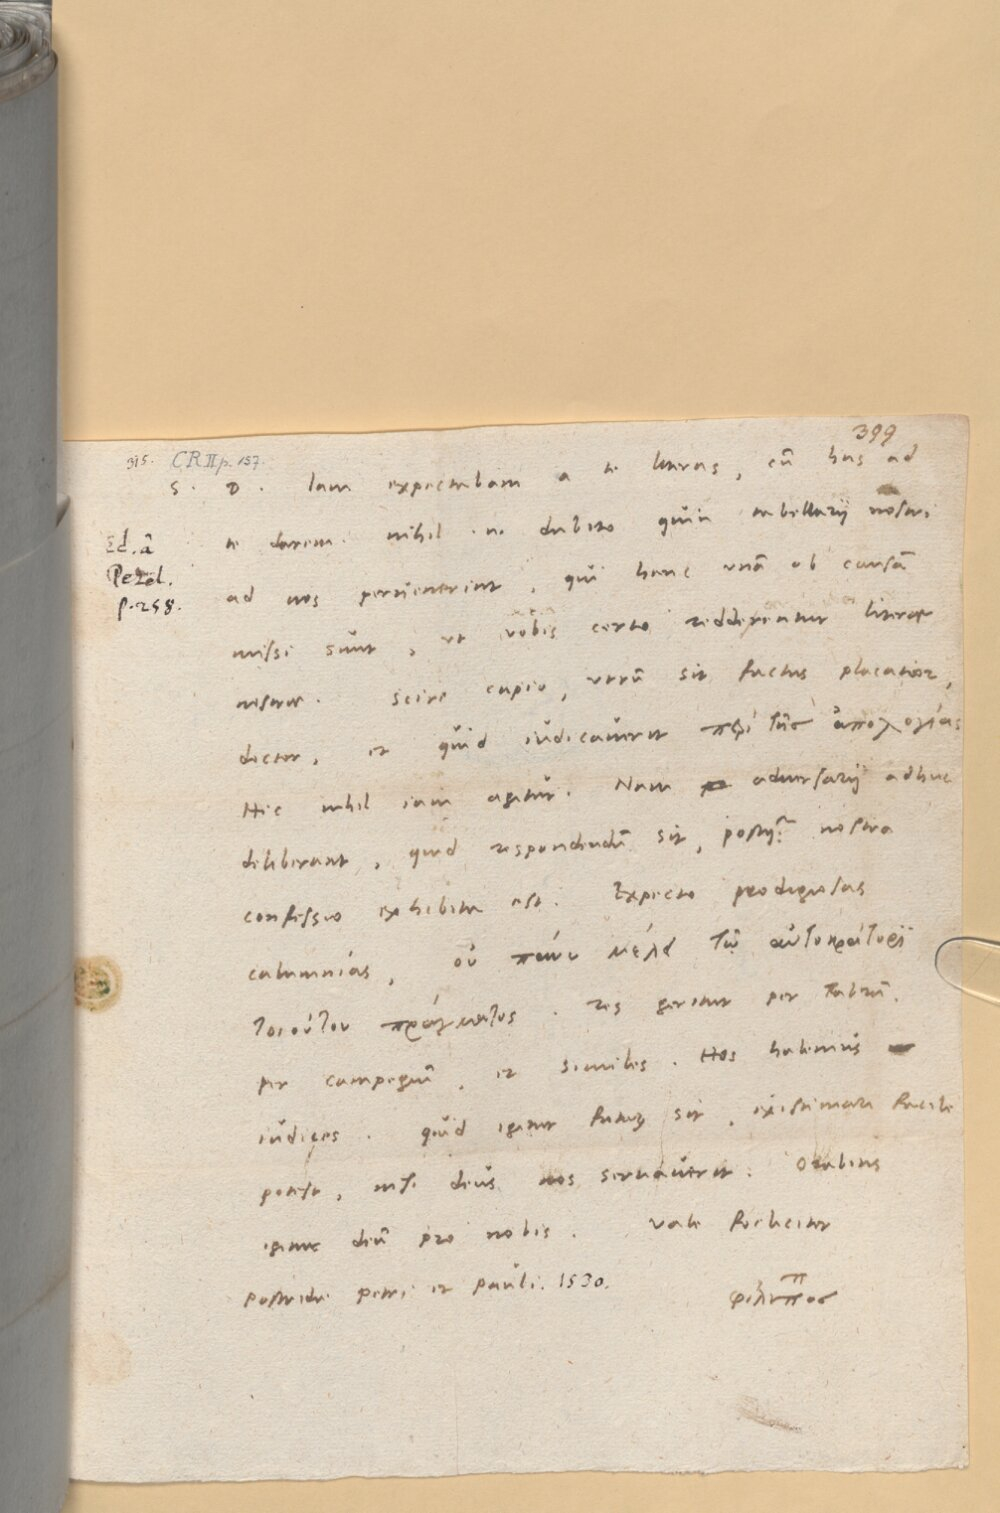 399
315. CR II p. 157.
S. D. Iam expectabam a te literas, cū has ad
te darem. nihil .n. dubito quin tabellarij nostri
Ed. a
Pezel.
p. 258.
ad vos pervenerint, qui hanc vnā ob causā
missi sunt, vt vobis certo redderentur literae
nostrae. Scire cupio, vtrū sit factus placatior,
doctor, et quid iudicaverit περὶ τῆς ἀπολογίας
Hic nihil iam agitur. Nam adversarij adhuc
deliberant, quid respondendū sit, postq̄ nostra
confessio exhibita est. Expecto prodigiosas
calumnias, οὐ πάνυ μέλει τῷ αὐτοκράτορϊ
τοιούτου πράγματος. res geritur per Fabrū.
per campegiū, et similes. Hos habemus
iudices. quid igitur futuū sit, existimari facile
potest, nisi deus nos servaverit. Orabitis
igitur deū pro nobis. Vale foeliciter
postridie petri et pauli. 1530. φίλιππος